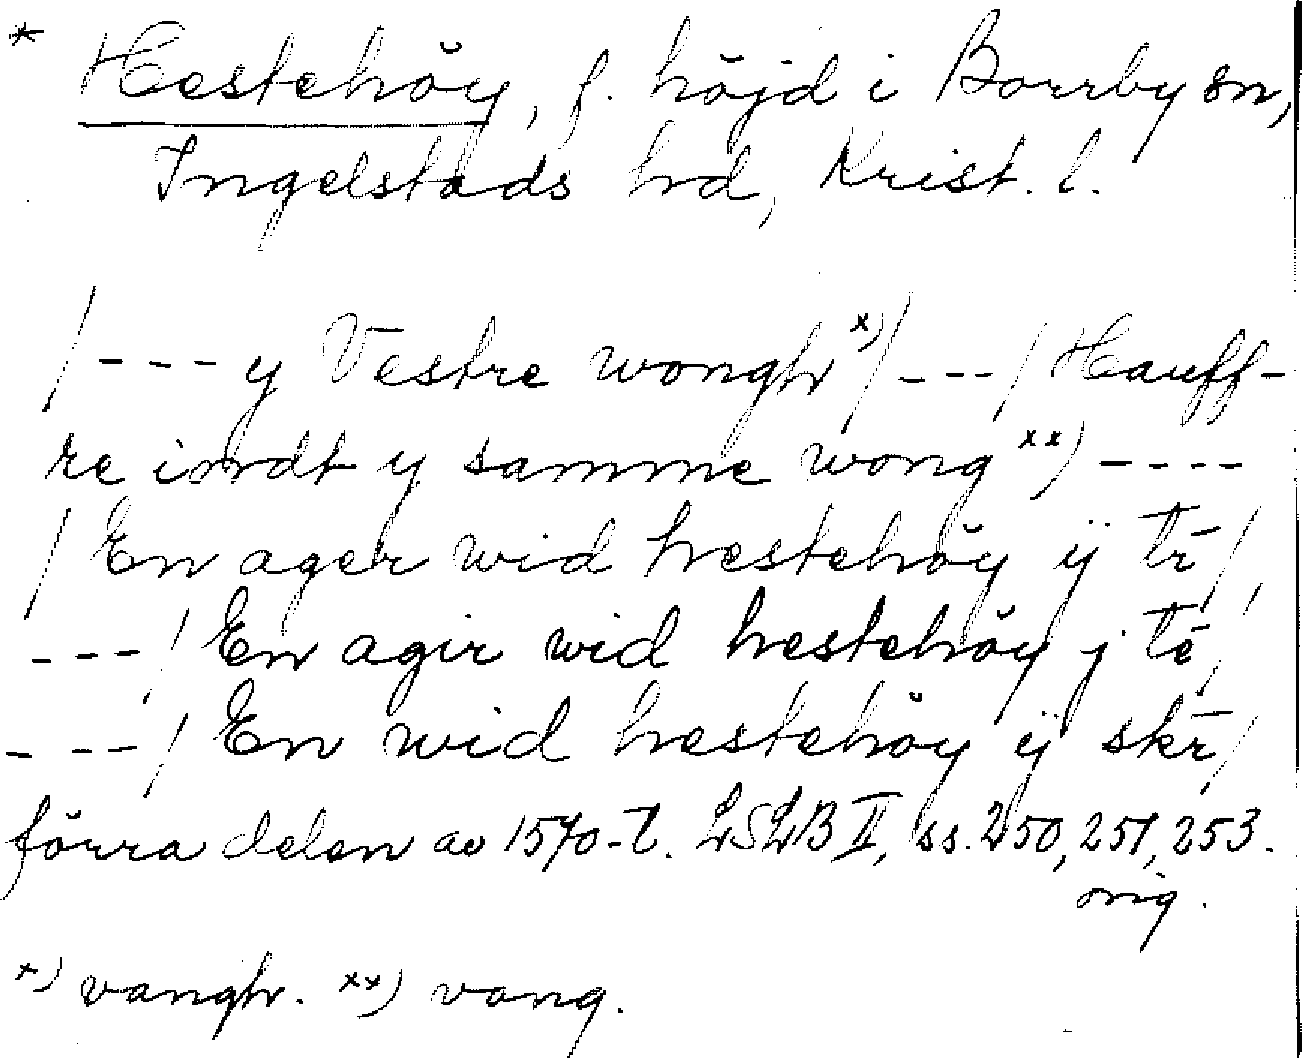 * Hestehöy, f. höjd i Borrby sn,
Ingelstads hd, Krist. l.
/--- y Vestre wongh x)/---/ Hauff-
re inrdt y samme wong xx) ----
/ En ager wid hestehöy ÿ tr̄/,
---/ En agir wid hestehöy j tē,
---/ En wid hestehöy ÿ skr̄/
förra delen av 1570-t. LSLB II, ss. 250, 251, 253.
orig.
x) vangh. xx) vang.